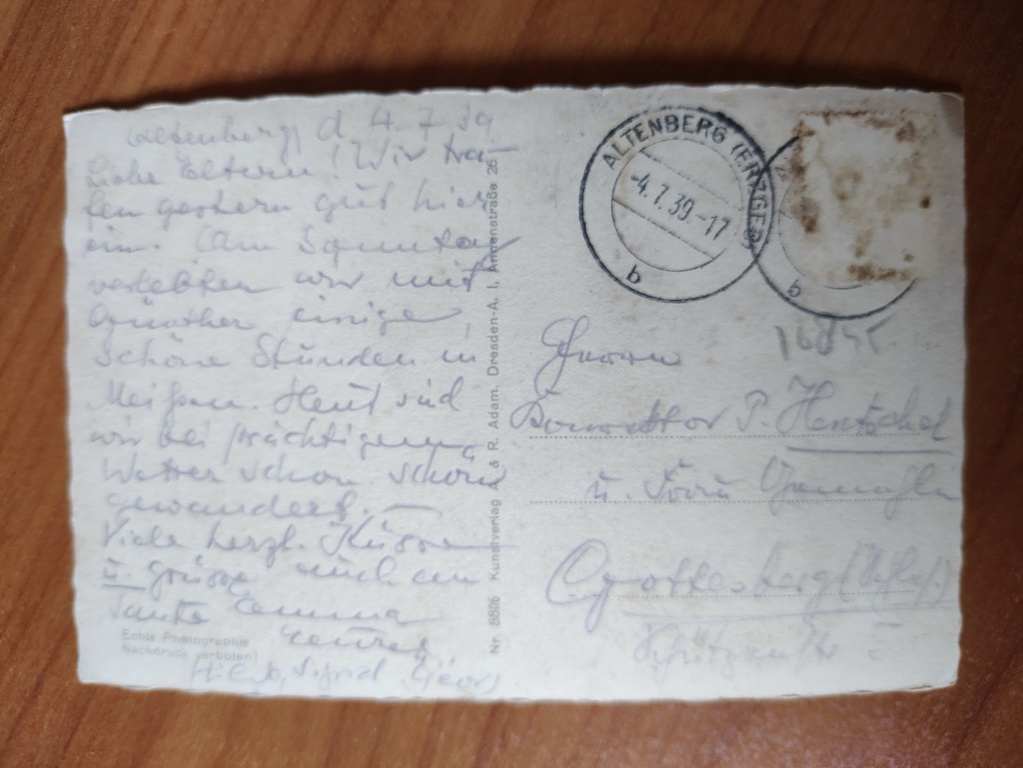 Altenberg, d 4.7.39
Liebe Eltern! Wir tra-
fen gestern gut hier
ein. Am Sonntag
verlebten wir mit
Günther einige
schöne Stunden in
Meißen. Heut sind
wir bei prächtigem
Wetter schon schön
gewandert. —
Viele herzl. Küsse
u. Grüsse auch an
Tante Emma
Eure
Hilde, Sigrid, Georg
Echte Photographie
Nachdruck verboten!
Nr. 8806 Kunstverlag A. & R. Adam. Dresden-A. 1, Annenstraße 26
ALTENBERG (ERZGEB)
-4.7.39.-17
b
b
Herrn
Konrektor P. Hentschel
u. Frau Gemahlin
Gottesberg (Schles.)